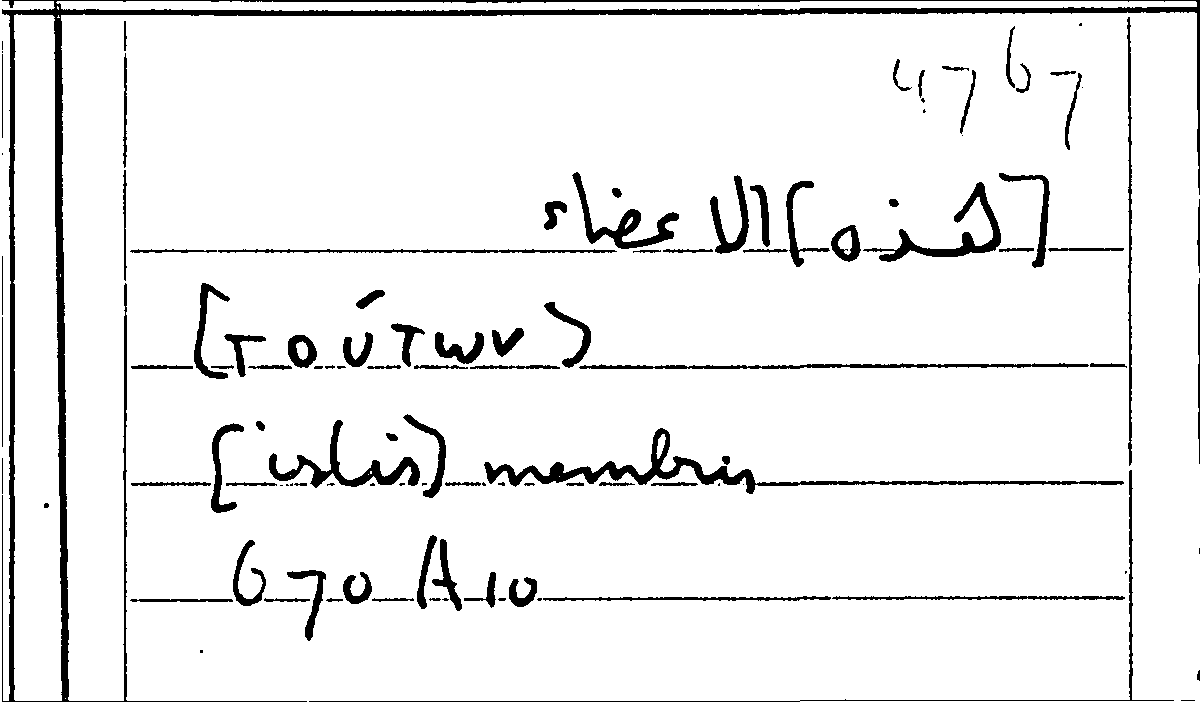 4767
[هذه] الاعضاء
[τούτων]
[istis] membris
670 A10